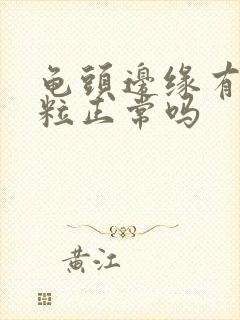 龟头邊缘有
粒正常吗
黄江